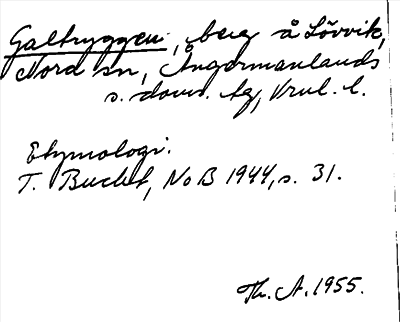 Galtryggen, berg å Lövvik,
Nord sn, Ångermanlands
s. doms. tg, Vnrl. l.
Etymologi.
T. Bucht, NoB 1944, s. 31.
Th. A. 1955.